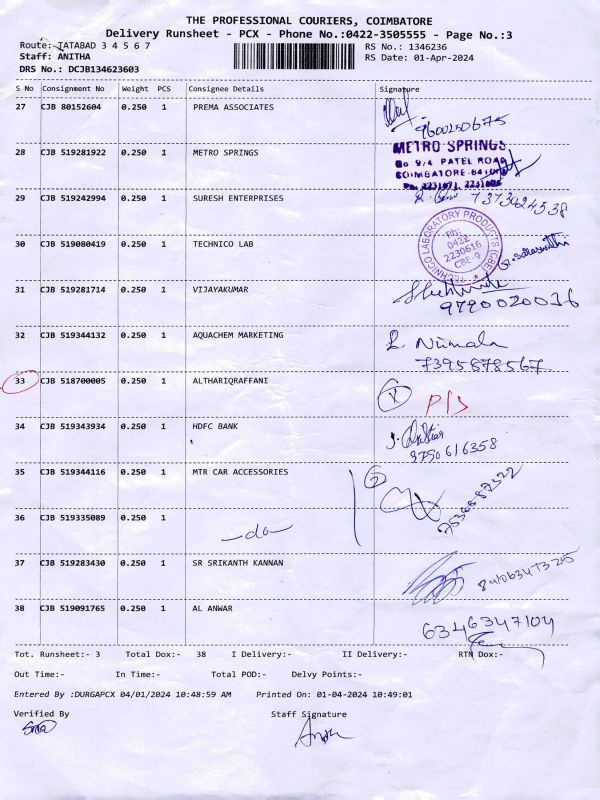 THE PROFESSIONAL COURIERS, COIMBATORE
Delivery Runsheet - PCX - Phone No.:0422-3505555 - Page No.:3
Route: TATABAD 3 4 5 6 7 RS No.: 1346236
Staff: ANITHA RS Date: 01-Apr-2024
DRS No.: DCJB134623603
S No Consignment No Weight PCS Consignee Details Signature
27 CJB 80152604 0.250 1 PREMA ASSOCIATES
9600250675
28 CJB 519281922 0.250 1 METRO SPRINGS METRO SPRINGS
No 9/4 PATEL ROAD
COIMBATORE-641
Ph: 2231671,
29 CJB 519242994 0.250 1 SURESH ENTERPRISES 7373024538
30 CJB 519080419 0.250 1 TECHNICO LAB
TECHNICO LABORATORY PRODUCTS (CBE)
Ph:
0422
2230616
CBE-9
31 CJB 519281714 0.250 1 VIJAYAKUMAR
9790020036
32 CJB 519344132 0.250 1 AQUACHEM MARKETING R. Nirmala
7395878567
33 CJB 518700005 0.250 1 ALTHARIQRAFFANI P/S
34 CJB 519343934 0.250 1 HDFC BANK
9750616358
35 CJB 519344116 0.250 1 MTR CAR ACCESSORIES 2
36 CJB 519335089 0.250 1 -do-
37 CJB 519283430 0.250 1 SR SRIKANTH KANNAN
38 CJB 519091765 0.250 1 AL ANWAR 6346347104
Tot. Runsheet:- 3 Total Dox:- 38 I Delivery:- II Delivery:- RTN Dox:-
Out Time:- In Time:- Total POD:- Delvy Points:-
Entered By :DURGAPCX 04/01/2024 10:48:59 AM Printed On: 01-04-2024 10:49:01
Verified By Staff Signature